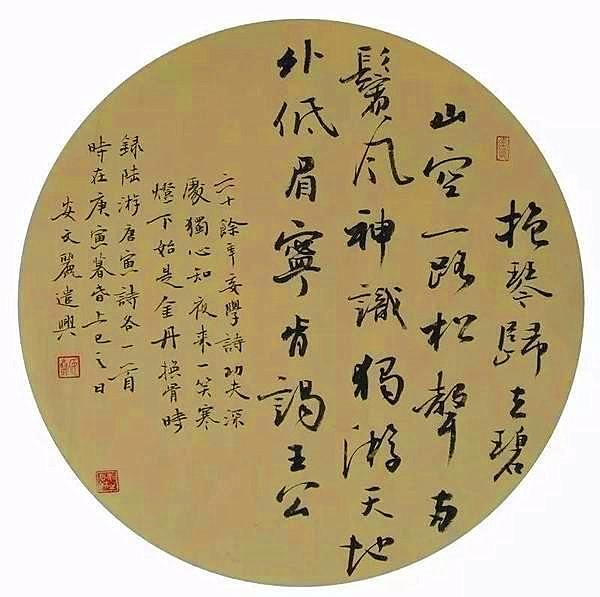 抱琴歸去碧
山空一路松聲两
鬢风神識獨游天地
外低眉寧肯謁王公
六十餘年妄學詩功夫深
處獨心知夜来一笑寒
燈下始是金丹換骨時
録陸游唐寅詩各一首
時在庚寅暮春上巳之日
安文麗遣興